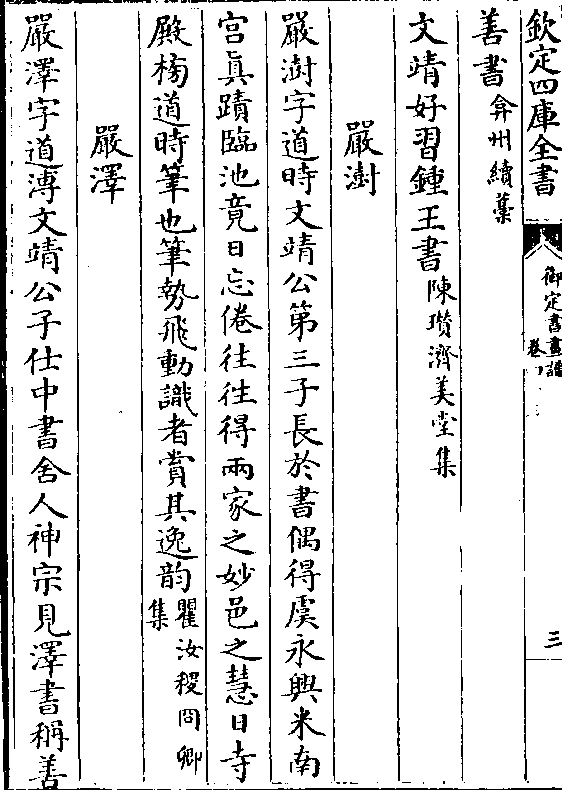 欽定四庫全書
御定書畫譜
卷
三
善書弇州續藁
文靖好習鍾王書陳瓚濟美堂集
嚴澍
嚴澍字道時文靖公第三子長於書偶得虞永興米南
宫眞蹟臨池竟日忘倦往往得兩家之妙邑之慧日寺
殿榜道時筆也筆勢飛動識者賞其逸韵瞿汝稷冏卿
集
嚴澤
嚴澤字道溥文靖公子仕中書舍人神宗見澤書稱善